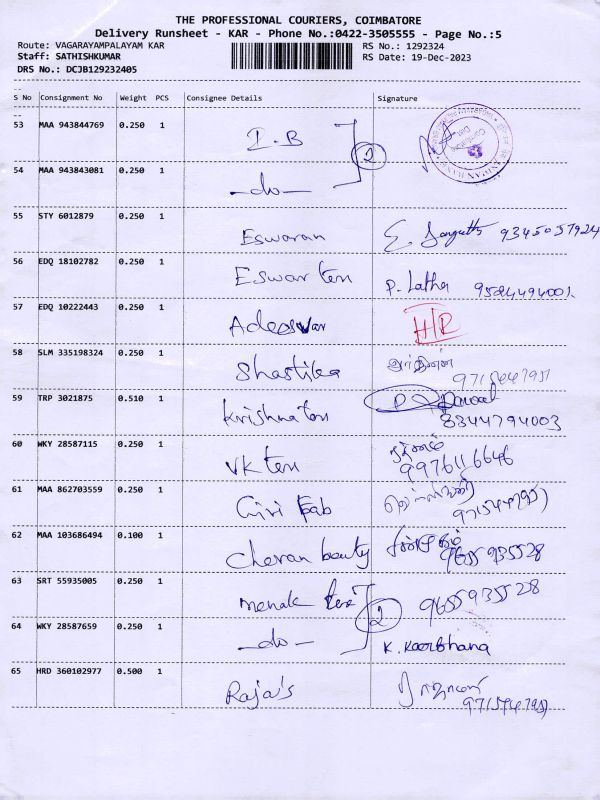 THE PROFESSIONAL COURIERS, COIMBATORE
Delivery Runsheet - KAR - Phone No.:0422-3505555 - Page No.:5
Route: VAGARAYAMPALAYAM KAR RS No.: 1292324
Staff: SATHISHKUMAR RS Date: 19-Dec-2023
DRS No.: DCJB129232405
S No Consignment No Weight PCS Consignee Details Signature
53 MAA 943844769 0.250 1 I.B
2
54 MAA 943843081 0.250 1 -do-
55 STY 6012879 0.250 1 Eswaran 9345057924
56 EDQ 18102782 0.250 1 Eswar tex P. Latha
57 EDQ 10222443 0.250 1 Adeeswar H/R
58 SLM 335198324 0.250 1 Shastika
59 TRP 3021875 0.510 1 Krishna tex
8344794003
60 WKY 28587115 0.250 1 VK tex
9976116646
61 MAA 862703559 0.250 1 Giri Fab
62 MAA 103686494 0.100 1 Cheran beauty 9655935528
63 SRT 55935005 0.250 1 9655935528
2
64 WKY 28587659 0.250 1 -do-
65 HRD 360102977 0.500 1 Raja's